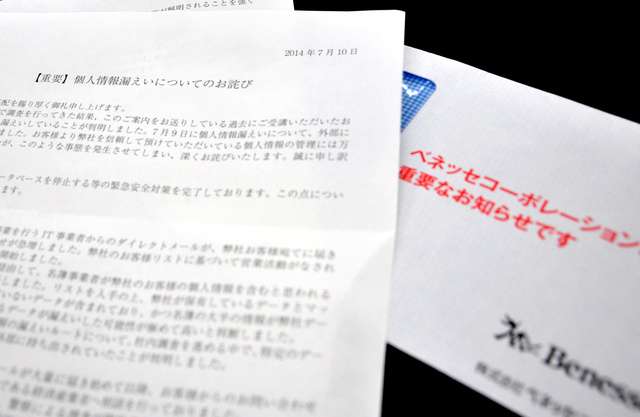 が解明されることを強く
2014年7月10日
【重要】個人情報漏えいについてのお詫び
配を賜り厚く御礼申し上げます。
で調査を行ってきた結果、このご案内をお送りしている過去にご受講いただいたお
漏えいしていることが判明しました。7月9日に個人情報漏えいについて、外部に
ました。お客様より弊社を信頼して預けていただいている個人情報の管理には万
が、このような事態を発生させてしまい、深くお詫びいたします。誠に申し訳
ータベースを停止する等の緊急安全対策を完了しております。この点につい
ます。
業を行うIT事業者からのダイレクトメールが、弊社お客様宛てに届き
せが急増しました。弊社のお客様リストに基づいて営業活動がなされ
開始しました。
経由して、名簿事業者が弊社のお客様の個人情報を含むと思われる
しました。リストを入手の上、弊社が保有しているデータとマッ
いないデータが含まれており、かつ名簿の大半の情報が弊社デー
データが漏えいした可能性が極めて高いと判断しました。
報の漏えいルートについて、社内調査を進める中で、特定のデー
部に持ち出されていたことが判明しました。
ールが大量に届き始めて以降、お客様からのお問い合わせ
である経済産業省へ相談を行っておりました。
ベネッセコーポレーション
重要なお知らせです
Benesse
株式会社ベネッ